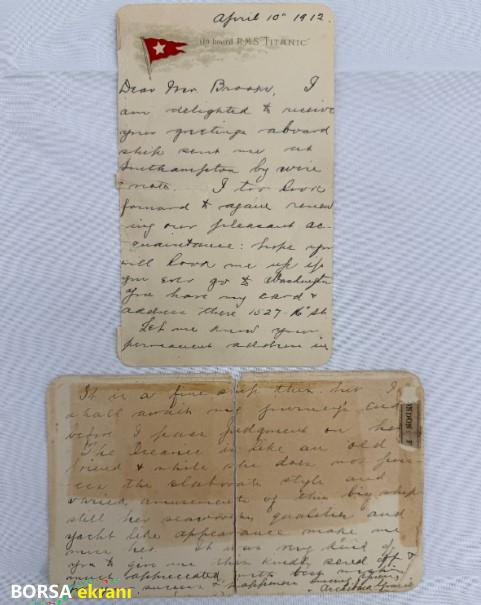 April 10th 1912.
on board R.M.S. TITANIC
Dear Mr. I
am delighted to receive
your greetings aboard
ship sent me at
Southampton by wire
& note. I too look
forward to again renew
ing our pleasant ac-
quaintance: hope you
will look me up if
you ever go to Washington
You have my card &
address there 1527.
Let me know your
permanent address in
It is a fine ship this but I
shall await my journey's end
before I pass judgment on her
The Oceanic is like an old
friend & while she does not poss-
ess the elaborate style and
varied amusements of this big ship
still her seaworthy qualities and
yacht like appearance make me
miss her. It was very kind of
you to give me this kindly send off &
with best wishes
success & happiness
Archibald Gracie
BORSA ekranı